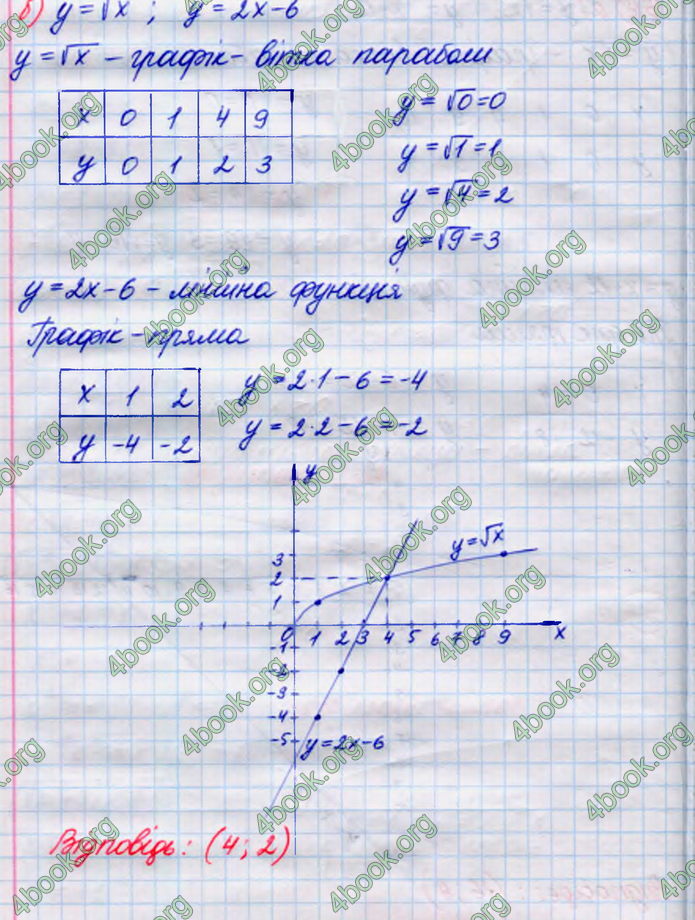 б) y = √x ; y = 2x - 6
y = √x - графік - вітка параболи
x 0 1 4 9
y 0 1 2 3
y = √0 = 0
y = √1 = 1
y = √4 = 2
y = √9 = 3
y = 2x - 6 - лінійна функція
Графік - пряма
x 1 2
y -4 -2
y = 2·1 - 6 = -4
y = 2·2 - 6 = -2
y
y = √x
3
2
1
0 1 2 3 4 5 6 7 8 9 x
-1
-2
-3
-4
-5
y = 2x - 6
Відповідь: (4; 2)
4book.org